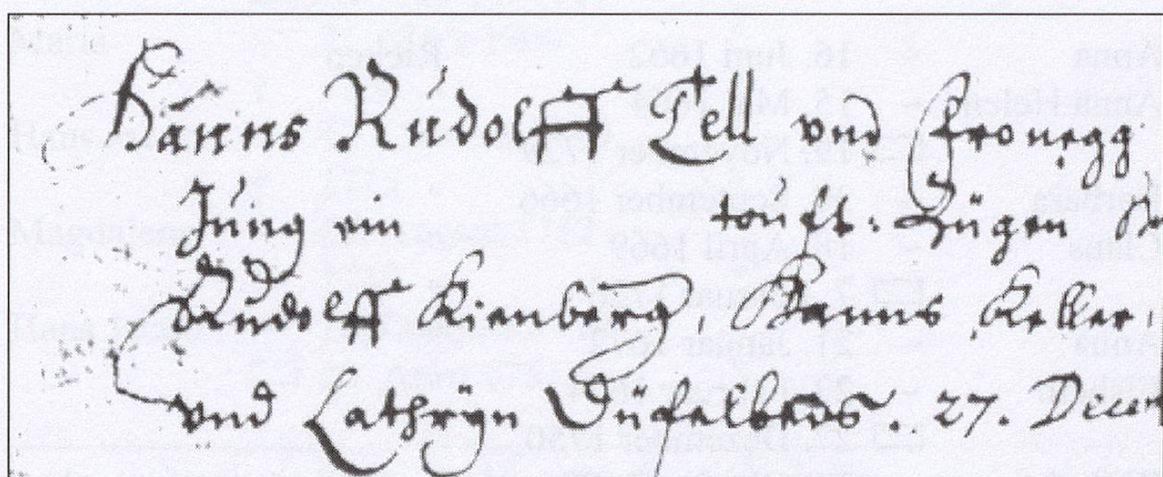 Hanns Rudolff Tell vnd Fronegg
Jung ein touft: Zügen
Rudolff Kienberg, Hanns Keller,
vnd Cathryn Düfelbeds. 27. Decem